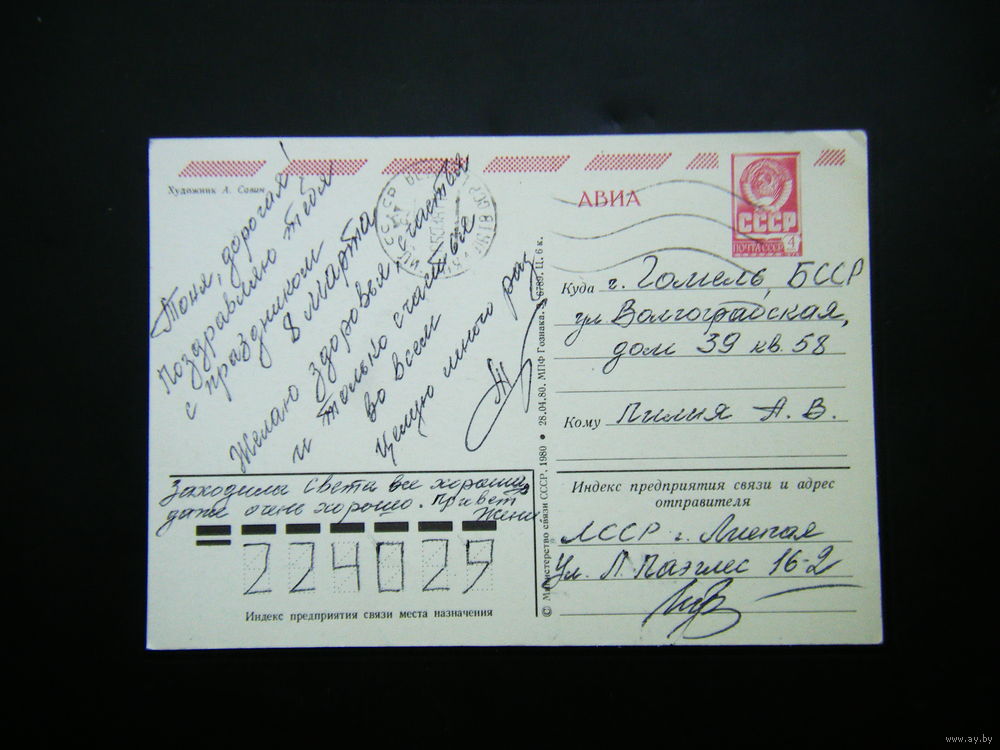 Художник А. Савин
АВИА
СССР
ПОЧТА СССР 4
Тоня, дорогая!
Поздравляю тебя
с праздником
8 марта
Желаю здоровья, счастья
и только счастья
во всем
Целую много раз
Заходила Света все хорошо,
даже очень хорошо. Привет
Жене
224025
Индекс предприятия связи места назначения
© Министерство связи СССР, 1980 • 28.04.80. МПФ Гознака. Ц. 6 к.
Куда г. Гомель, БССР
ул Волгоградская,
дом 39 кв. 58
Кому Пилия А. В.
Индекс предприятия связи и адрес
отправителя
ЛССР г. Лиепая
Ул. П. Паэглес 16-2
www.ay.by